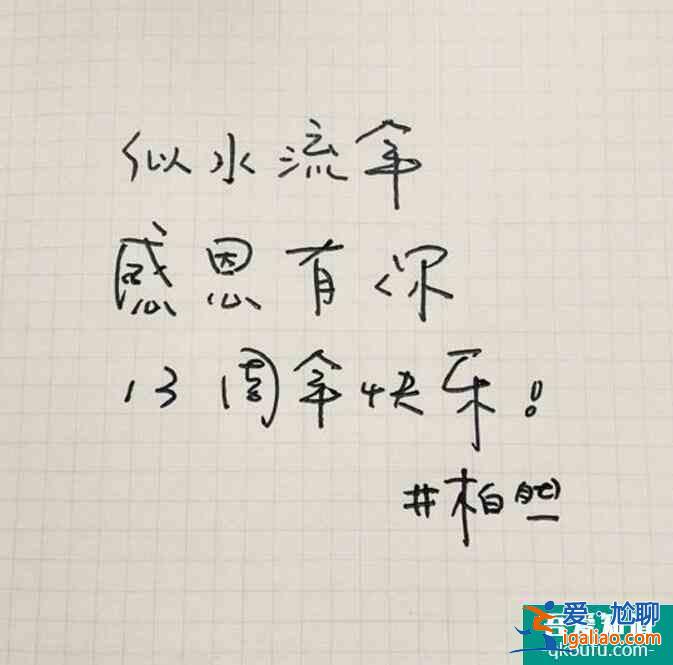 似水流年
感恩有你
13周年快乐！
#柏
爱尬聊
igaliao.com
qkoufu.com